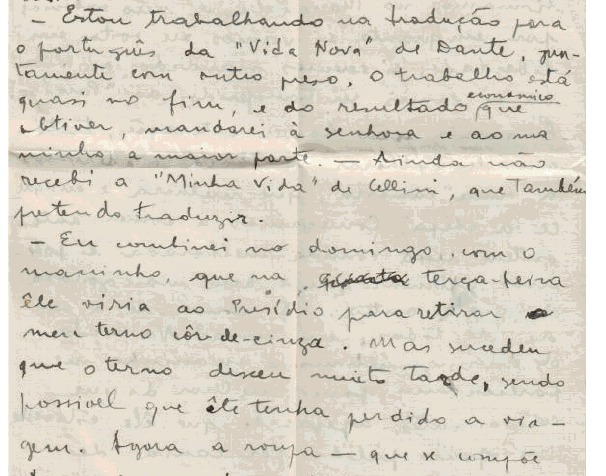 — Estou trabalhando na tradução para
o português da "Vida Nova" de Dante, jun-
tamente com outro preso. O trabalho está
quasi no fim, e do resultado econômico que
obtiver, mandarei à senhora e ao ma
ninho a maior parte. — Ainda não
recebi a "Minha Vida" de Cellini, que também
pretendo traduzir.
— Eu combinei no domingo, com o
maninho, que na quarta terça-feira
êle viria ao Presídio para retirar o
meu terno côr-de-cinza. Mas sucedeu
que o terno desceu muito tarde, sendo
possivel que êle tenha perdido a via-
gem. Agora a roupa — que se compõe